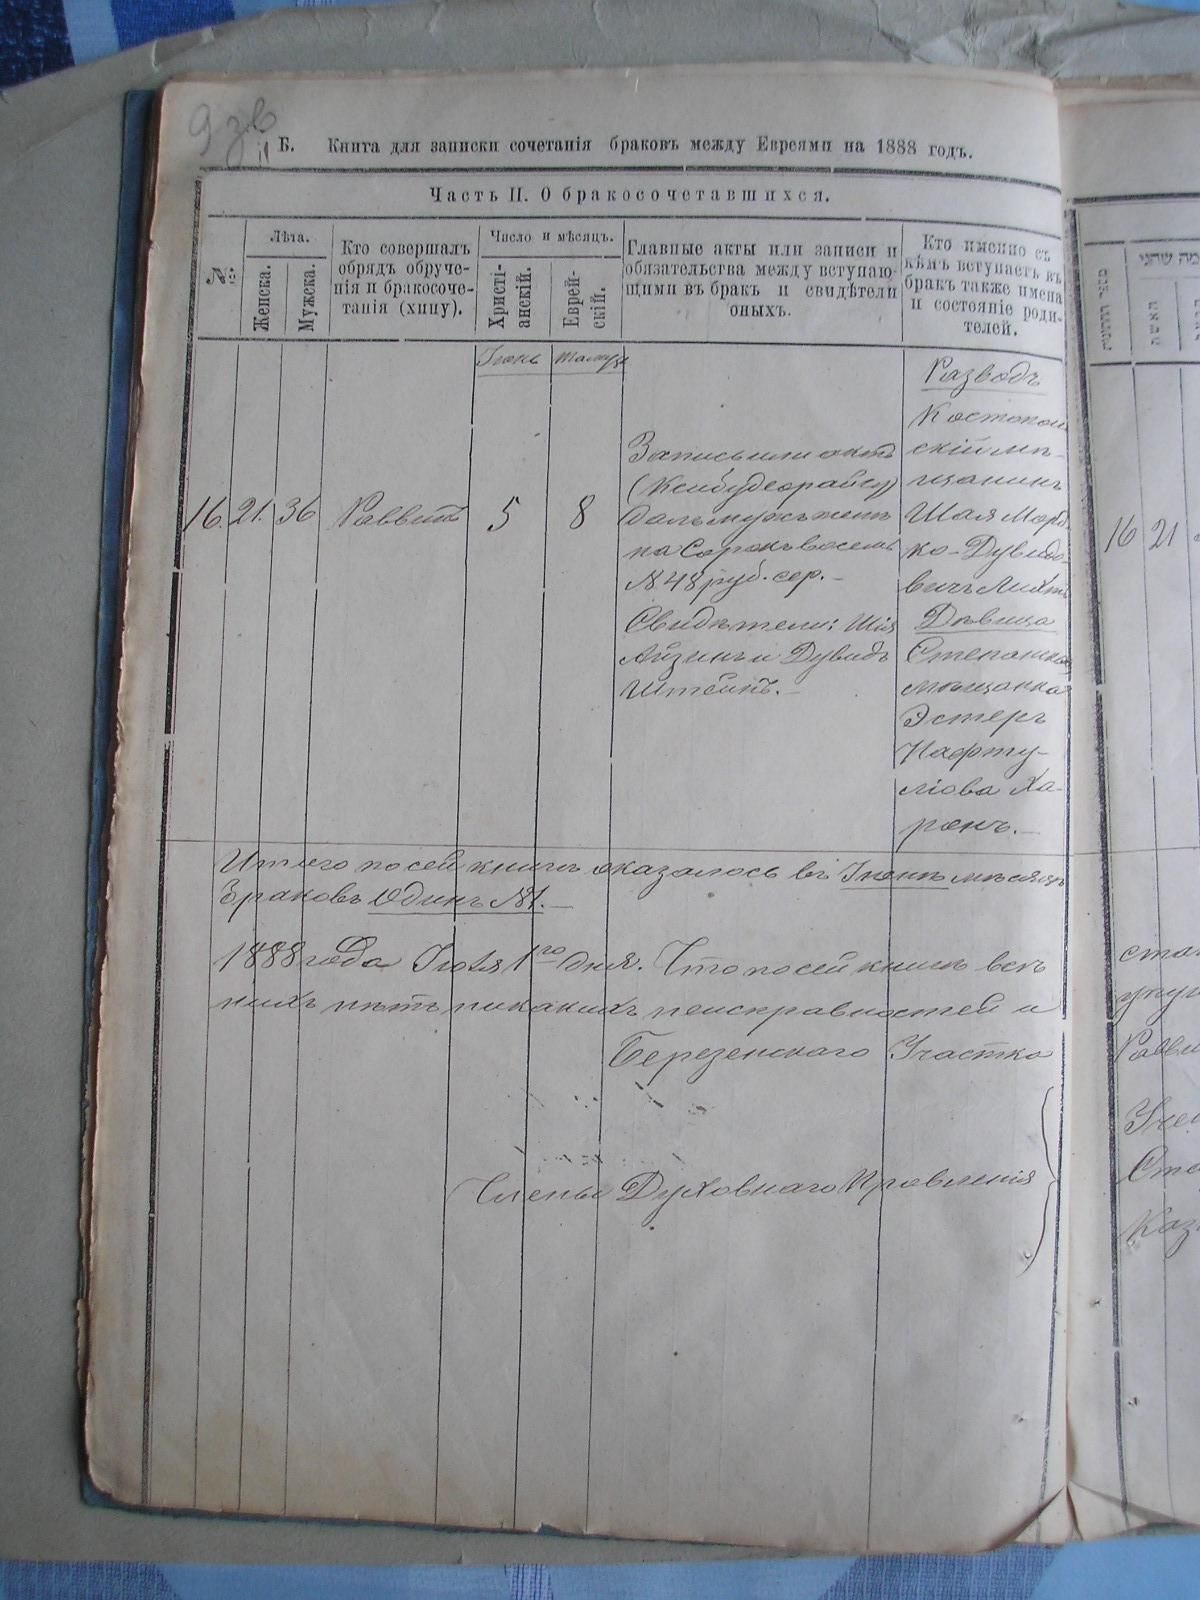 9 зв
11
Б. Книга для записки сочетанія браковъ между Евреями на 1888 годъ.
Часть II. О бракосочетавшихся.
№
Лѣта.
Женска.
Мужска.
Кто совершалъ
обрядъ обруче-
нія и бракосоче-
танія (хипу).
Число и мѣсяцъ.
Христі-
анскій.
Еврей-
скій.
Главные акты или записи и
обязательства между вступаю-
щими въ бракъ и свидѣтели
оныхъ.
Кто именно съ
кѣмъ вступаетъ въ
бракъ также имена
и состояніе роди-
телей.
Іюнь
Тамуз
16. 21. 36 Раввинъ 5 8
Запись или актъ
далъ мужъ женѣ
на Сорокъ восемь
№ 48 руб. сер.
Свидѣтели: Шія
Айзинъ и Дувидъ
Штейнъ.
Разводъ
Костополь
скій мѣ-
щанинъ
Шая Морд
ко-Дувидо-
вичъ Лихт
Дѣвица
Степанска
мѣщанка
Эстеръ
Нафту-
лiова Ха-
ронъ.
Итого по сей книгѣ оказалось въ Іюнѣ мѣсяцѣ
браковъ Одинъ №1.
1888 года Іюля 1го дня. Что по сей книгѣ всѣ
нихъ нѣтъ никакихъ неисправностей и
Березенскаго Участка
Члены Духовнаго Правленія
16 21
Казе